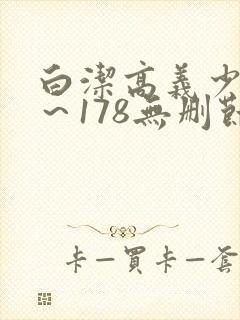 白潔高義少
～178無刪節
卡—買卡—套